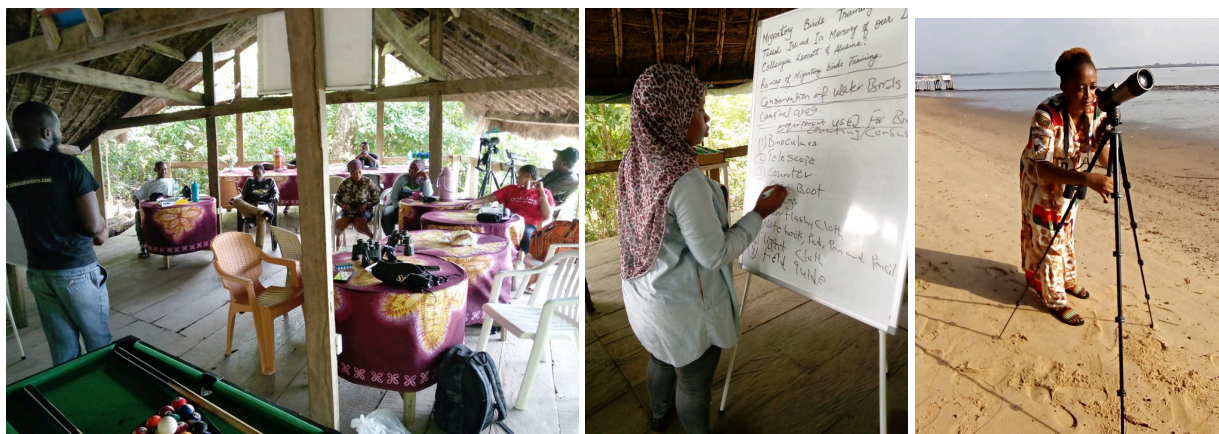 Migratory Birds Training
Island In Memory of our
Colleagues Kenneth & Alusine!
Re-cap of Migratory birds Training.
Conservation of Water Birds
Coastal area.
equipment used For
counting/Census
(1) Binoculars
(2) Telescope
(3) Counter
Boot
flash, Cloth
book, Pad, Pen and Pencil
light Cloth
Field guide